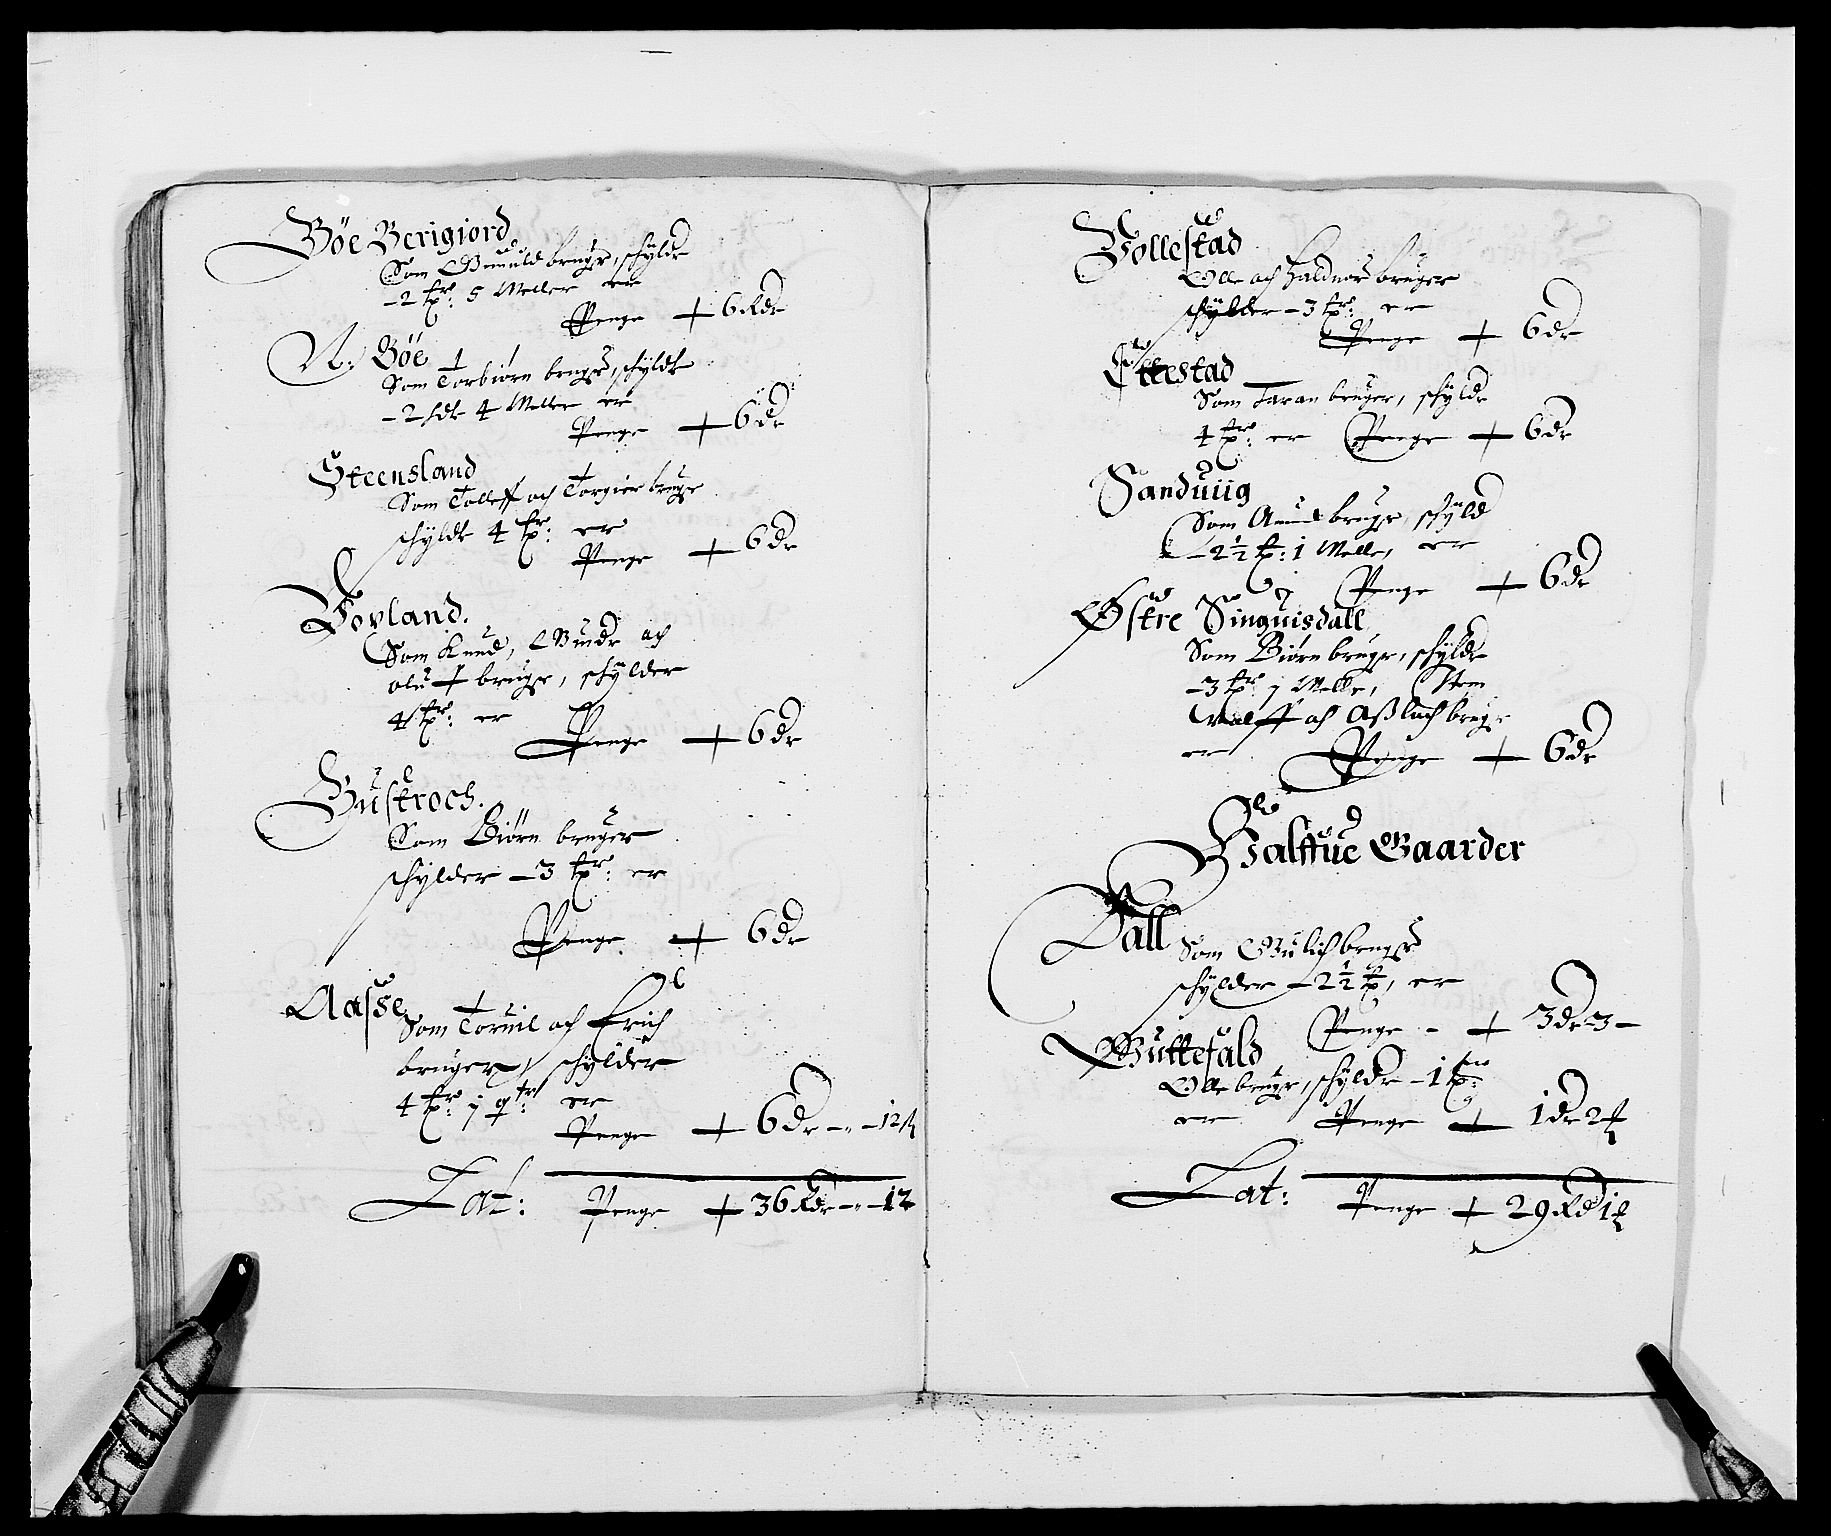 Bøe Berigiord
Som Gunuld bruger, schylder
- 2 tpr: 5 Meller er
Penge + 6 Rdr
N: Bøe
Som Torbiørn bruger, schylder
- 2 hdr 4 Meller er
Penge + 6 dr
Steensland
Som Tolleff och Torgier bruger
schylder 4 tpr: er
Penge + 6 dr
Hovland.
Som Knud, Gunder och
oluff bruger, schylder
4 tpr: er
Penge + 6 dr
Gustroch.
Som Biørn bruger
schylder - 3 tpr: er
Penge + 6 dr
Aasse
Som Toruil och Erich
bruger, schylder
4 tpr: j qtr: er
Penge + 6 dr - " - 12 ß
Lat: Penge + 36 Rdr - " - 12
Follestad
Olle och Halduor bruger
schylder - 3 tpr: er
Penge + 6 dr
Ettestad
Som Taran bruger, schylder
4 tpr: er Penge + 6 dr
Sanduiig
Som Amund bruger, schylder
- 2 1/2 tp: 1 Melle, er
Penge + 6 dr
Østre Singuisdall
Som Biørn bruger, schylder
- 3 tpr. j Melle, Nom
och Aßlach bruger
er Penge + 6 dr
Halffue Gaarder
Dall
Som Gulich bruger
schylder - 2 1/2 tp, er
Penge - + 3 dr - 3 -
Guttefald
Olle bruger, schylder - 1 tp:
er Penge + 1 dr 2 ƒ
Lat: Penge + 29 Rd 1 ƒ